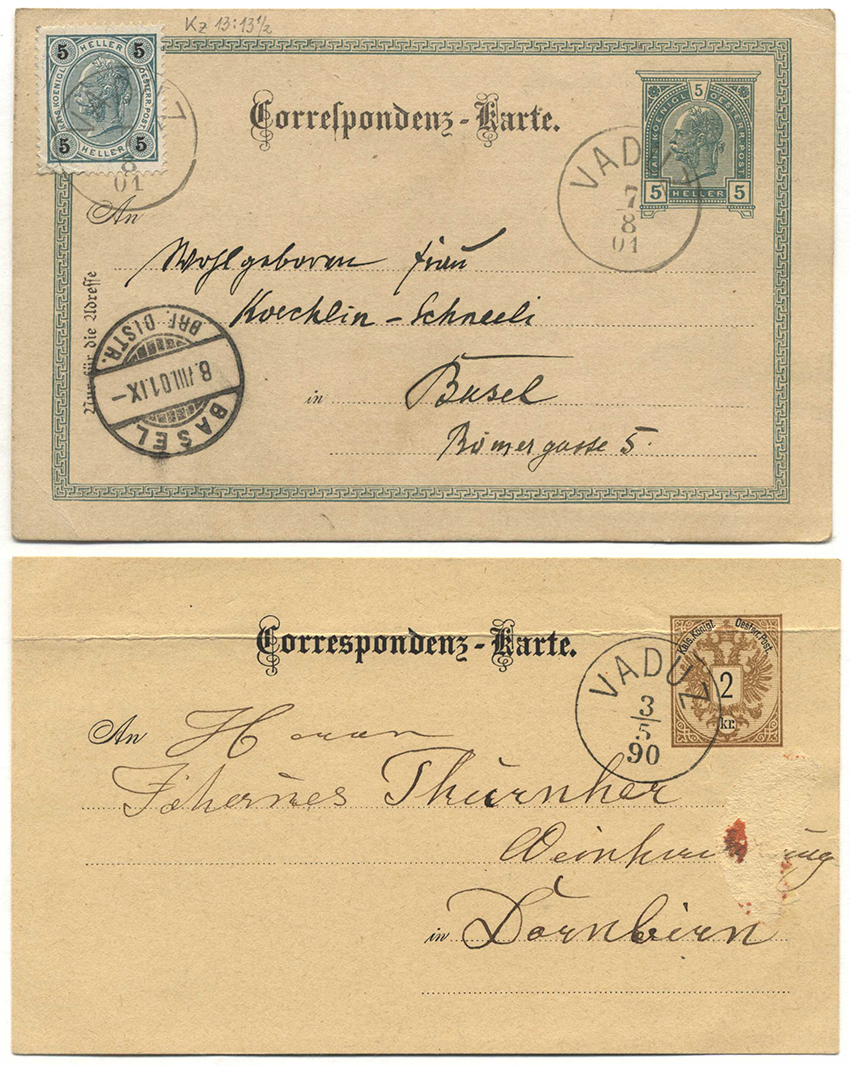 Kz 13:13½
5 HELLER 5
KAIS. KOENIGL. OESTERR. POST.
5 HELLER 5
8
01
Correſpondenz-Karte.
5
KAIS. KOENIGL. OESTERR. POST.
5 HELLER 5
VADUZ
7
8
01
An
Wohlgeboren Frau
Koechlin-Schneeli
in Basel
Römergasse 5.
Nur für die Adreſſe
BRF. DISTR.
8.VIII.01.IX-
BASEL
Correspondenz-Karte.
Kais. Königl. Oesterr. Post.
2
kr.
VADUZ
3
5
90
An Herrn
Johannes Thurnher
in Dornbirn